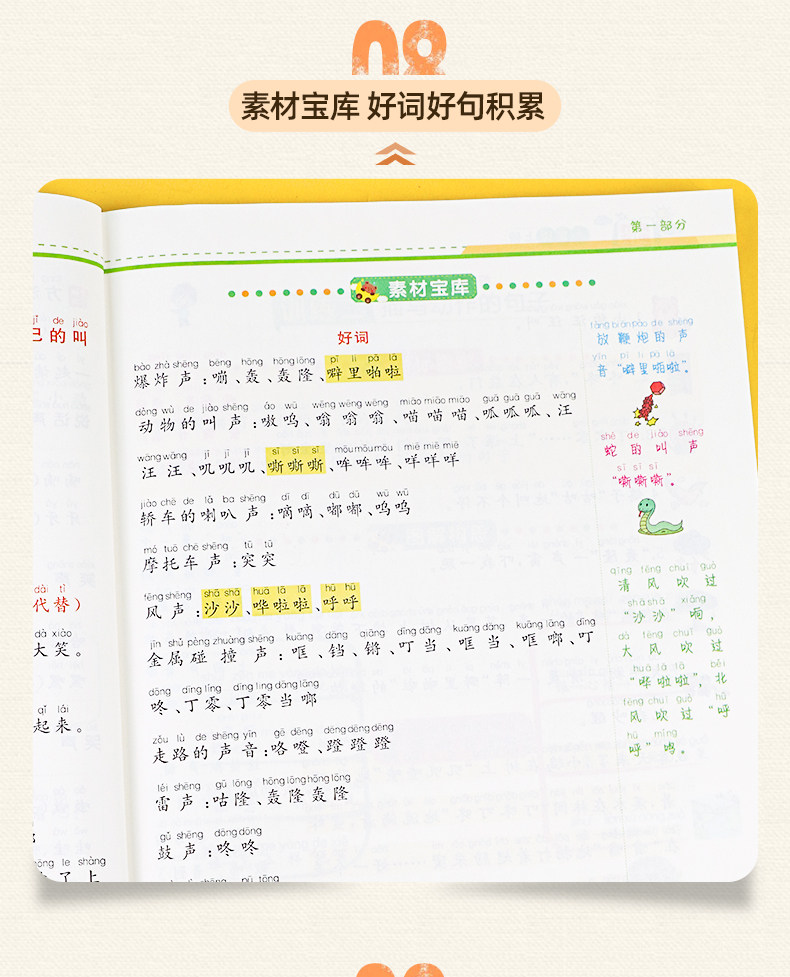 素材宝库 好词好句积累
第一部分
素材宝库
好词
bào zhà shēng bēng hōng hōng lōng pī lǐ pā lā
爆炸声：嘣、轰、轰隆、噼里啪啦
dòng wù de jiào shēng áo wū wēng wēng wēng miāo miāo miāo guā guā guā wāng
动物的叫声：嗷呜、嗡嗡嗡、喵喵喵、呱呱呱、汪
wāng wāng jī jī jī sī sī sī mōu mōu mōu miē miē miē
汪汪、叽叽叽、嘶嘶嘶、哞哞哞、咩咩咩
jiào chē de lǎ ba shēng dī dī dū dū wū wū
轿车的喇叭声：嘀嘀、嘟嘟、呜呜
mó tuō chē shēng tū tū
摩托车声：突突
fēng shēng shā shā huā lā lā hū hū
风声：沙沙、哗啦啦、呼呼
jīn shǔ pèng zhuàng shēng kuāng dāng qiāng dīng dāng kuāng dāng kuāng lāng dīng
金属碰撞声：哐、铛、锵、叮当、哐当、哐啷、叮
dōng dīng líng dīng líng dāng lāng
咚、丁零、丁零当啷
zǒu lù de shēng yīn gē dēng dēng dēng dēng
走路的声音：咯噔、蹬蹬蹬
léi shēng gū lōng hōng lōng hōng lōng
雷声：咕隆、轰隆轰隆
gǔ shēng dōng dōng
鼓声：咚咚
shēng pū tōng
fàng biān pào de shēng
放鞭炮的声
yīn pī lǐ pā lā
音“噼里啪啦”。
shé de jiào shēng
蛇的叫声
sī sī sī
“嘶嘶嘶”。
qīng fēng chuī guò
清风吹过
shā shā xiǎng
“沙沙”响，
dà fēng chuī guò
大风吹过
huā lā lā běi
“哗啦啦”，北
fēng chuī guò hū
风吹过“呼
hū míng
呼”鸣。
de jiào
的叫
dài tì
代替）
dà xiào
大笑。
qǐ lái
起来。
le shàng
了上